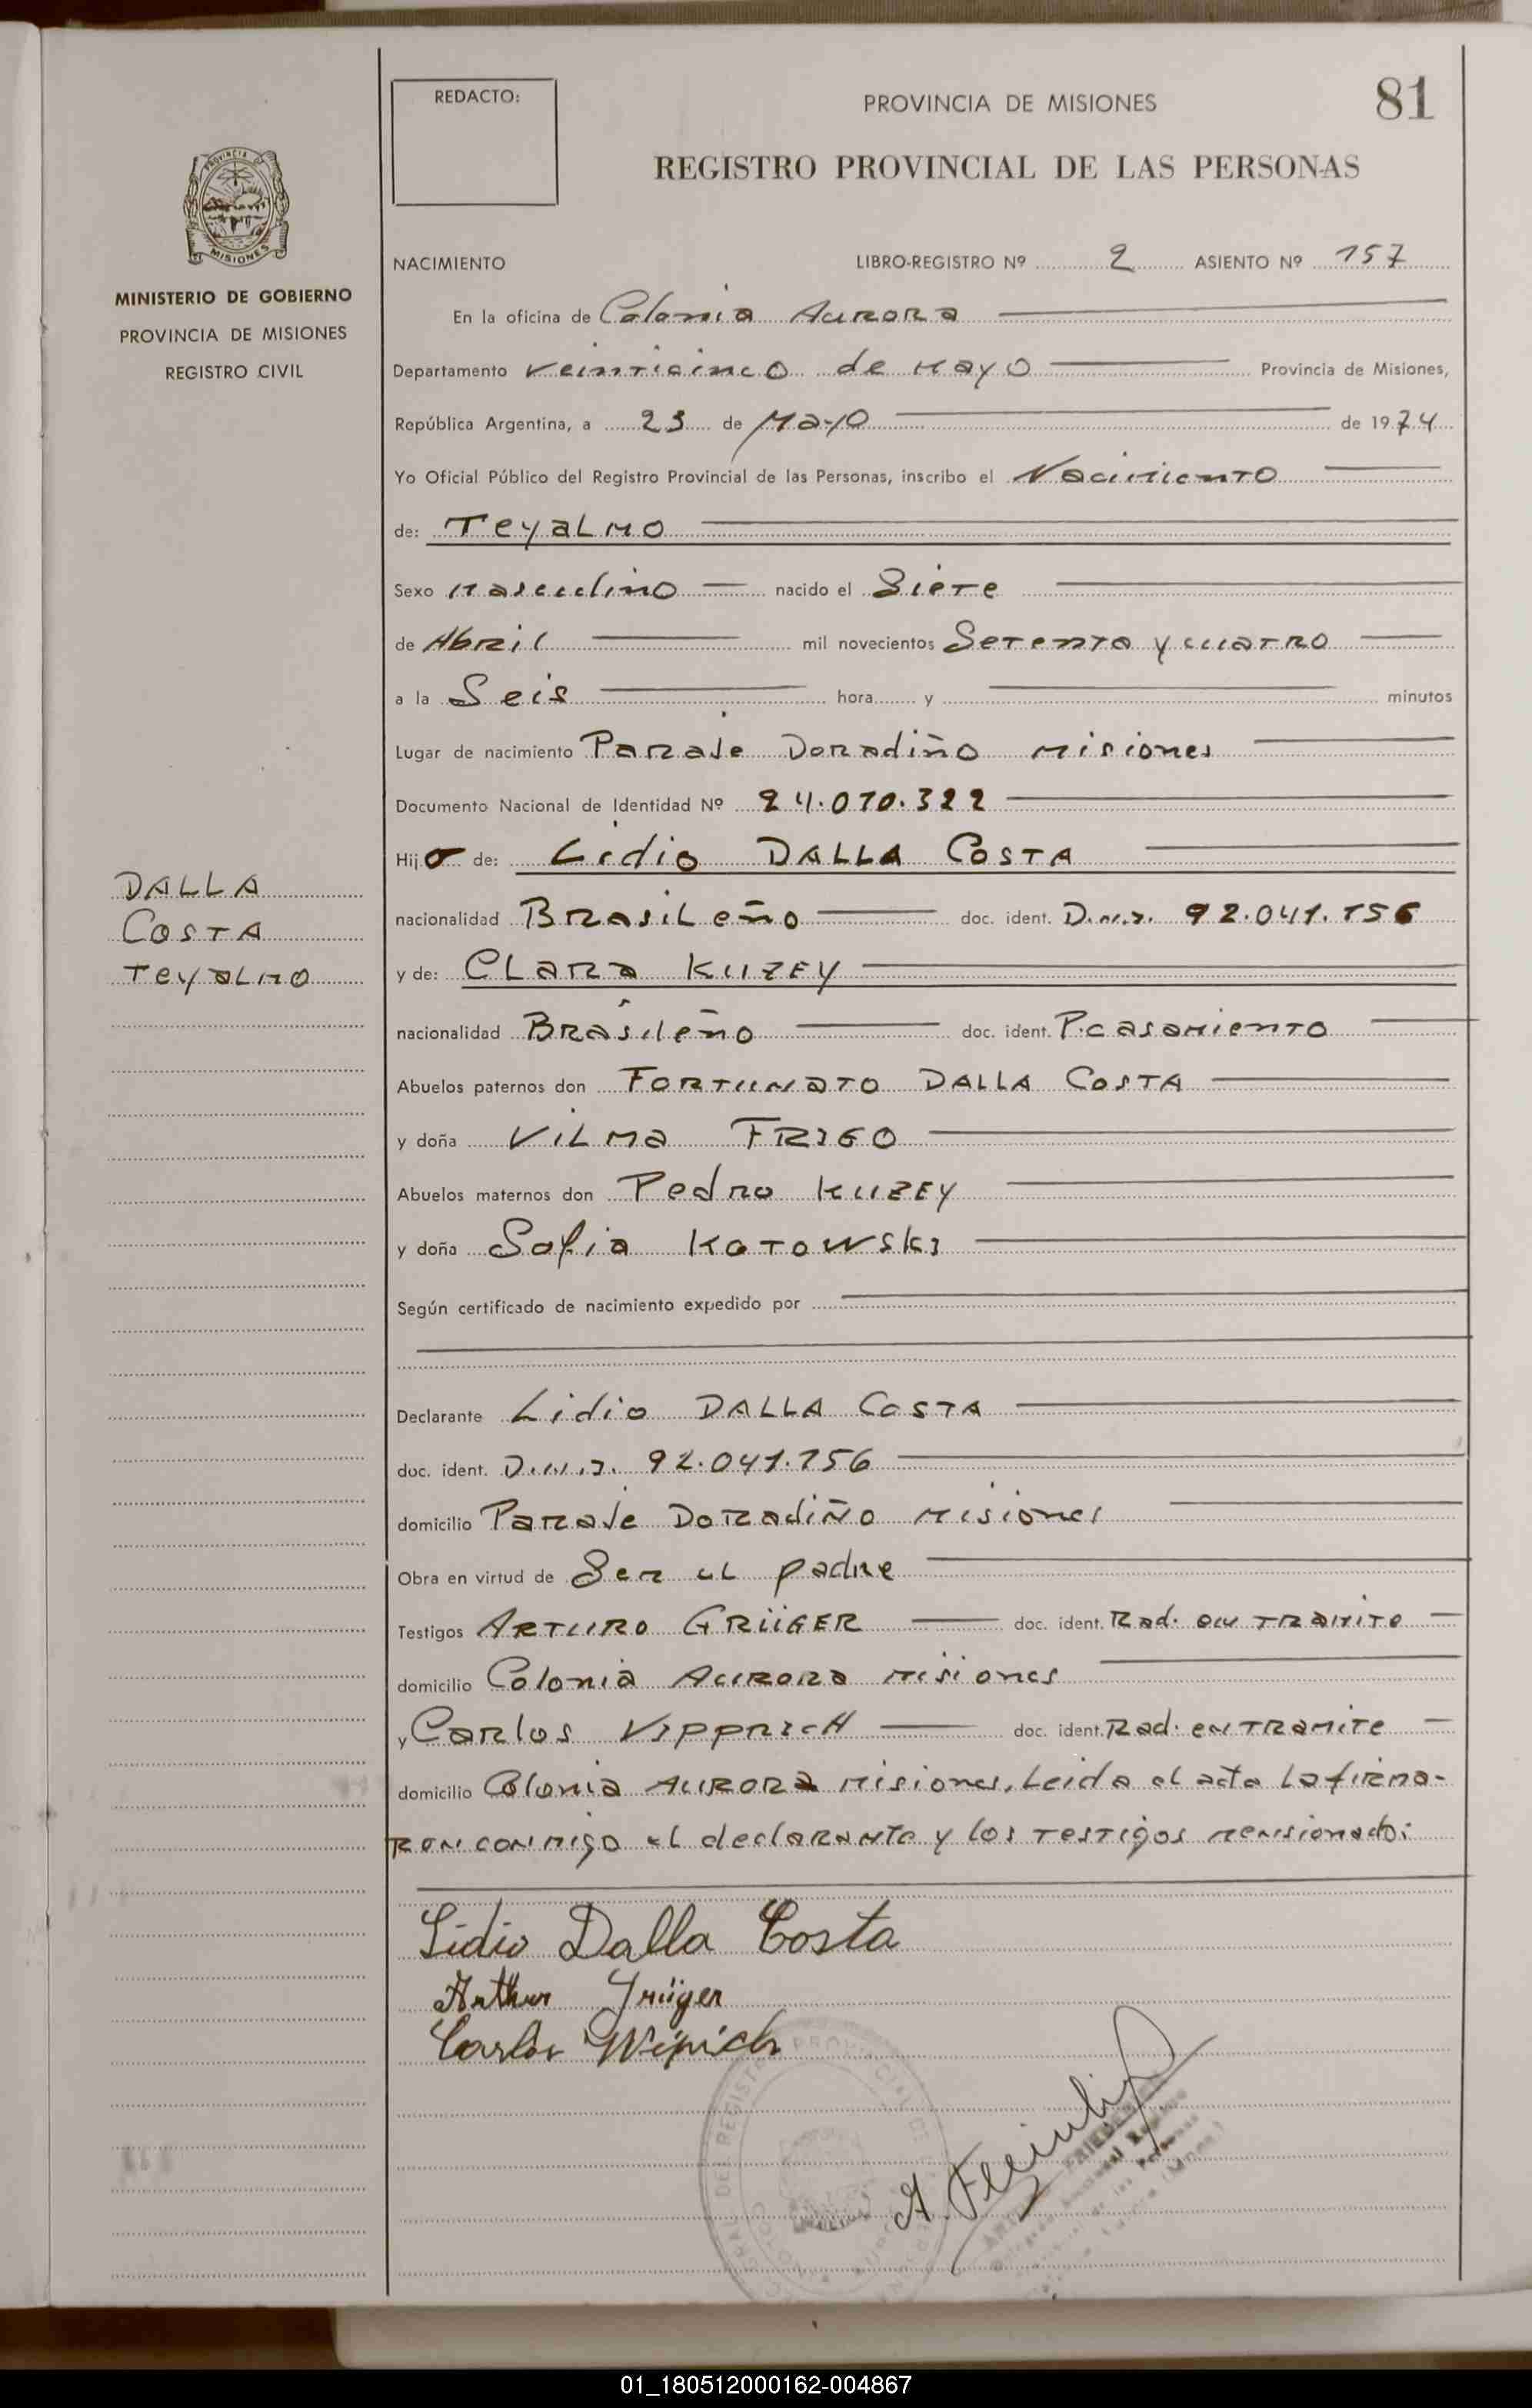 81
REDACTO:
PROVINCIA DE MISIONES
REGISTRO PROVINCIAL DE LAS PERSONAS
PROVINCIA
MISIONES
MINISTERIO DE GOBIERNO
PROVINCIA DE MISIONES
REGISTRO CIVIL
NACIMIENTO LIBRO-REGISTRO Nº 2 ASIENTO Nº 157
En la oficina de Colonia Aurora
Departamento Veinticinco de Mayo Provincia de Misiones,
República Argentina, a 23 de Mayo de 1974
Yo Oficial Público del Registro Provincial de las Personas, inscribo el Nacimiento
de: Teyalmo
Sexo Masculino nacido el Siete
de Abril mil novecientos Setenta y cuatro
a la Seis hora y minutos
Lugar de nacimiento Paraje Doradiño Misiones
Documento Nacional de Identidad Nº 24.010.322
Hijo de: Lidio DALLA COSTA
nacionalidad Brasileño doc. ident. D.N.I. 92.041.156
y de: Clara KUZEY
nacionalidad Brasileño doc. ident. P.casamiento
Abuelos paternos don FORTUNATO DALLA COSTA
y doña Vilma FRIGO
Abuelos maternos don Pedro KUZEY
y doña Sofia Kotowski
Según certificado de nacimiento expedido por
DALLA
COSTA
Teyalmo
Declarante Lidio DALLA COSTA
doc. ident. D.N.I. 92.041.156
domicilio Paraje Doradiño Misiones
Obra en virtud de Ser el padre
Testigos ARTURO GRÜGER doc. ident. Rad. en tramite
domicilio Colonia Aurora Misiones
y Carlos Vipprich doc. ident. Rad. en tramite
domicilio Colonia Aurora Misiones, Leida el acta la firma-
ron conmigo el declarante y los testigos mensionados
Lidio Dalla Costa
Arthur Grüger
Carlos Wipich
01_180512000162-004867